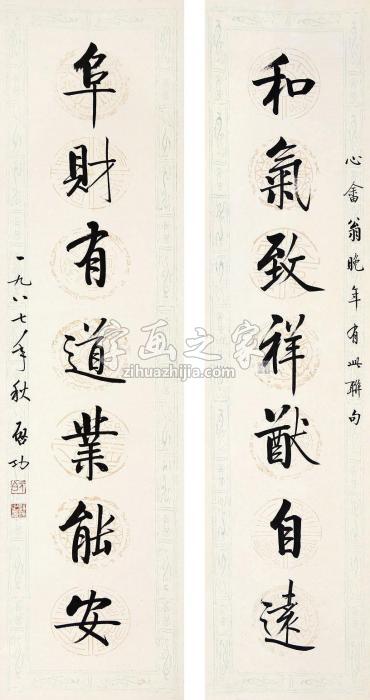 心畬翁晚年有此聯句
和氣致祥猷自遠
阜財有道業能安
一九八七年秋 啟功
字画之家
zihuazhijia.com